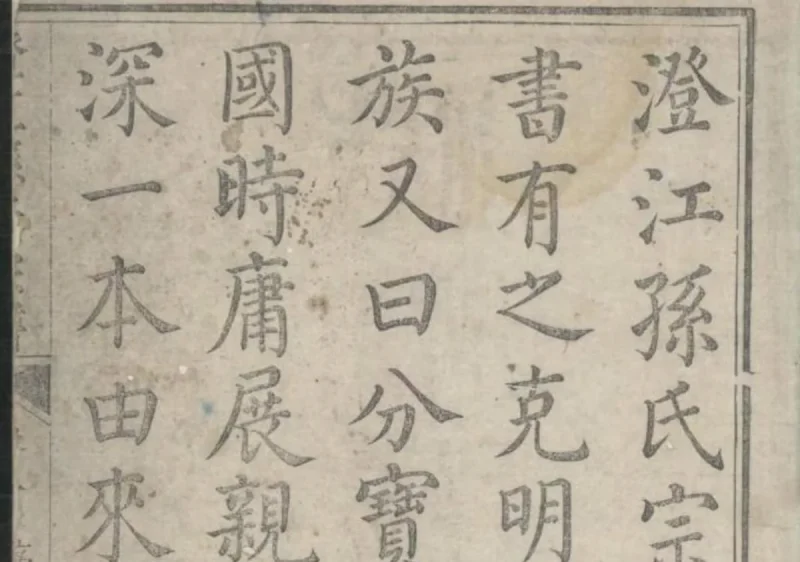 澄江孫氏宗
書有之克明
族又曰分寶
國時庸展親
深一本由來